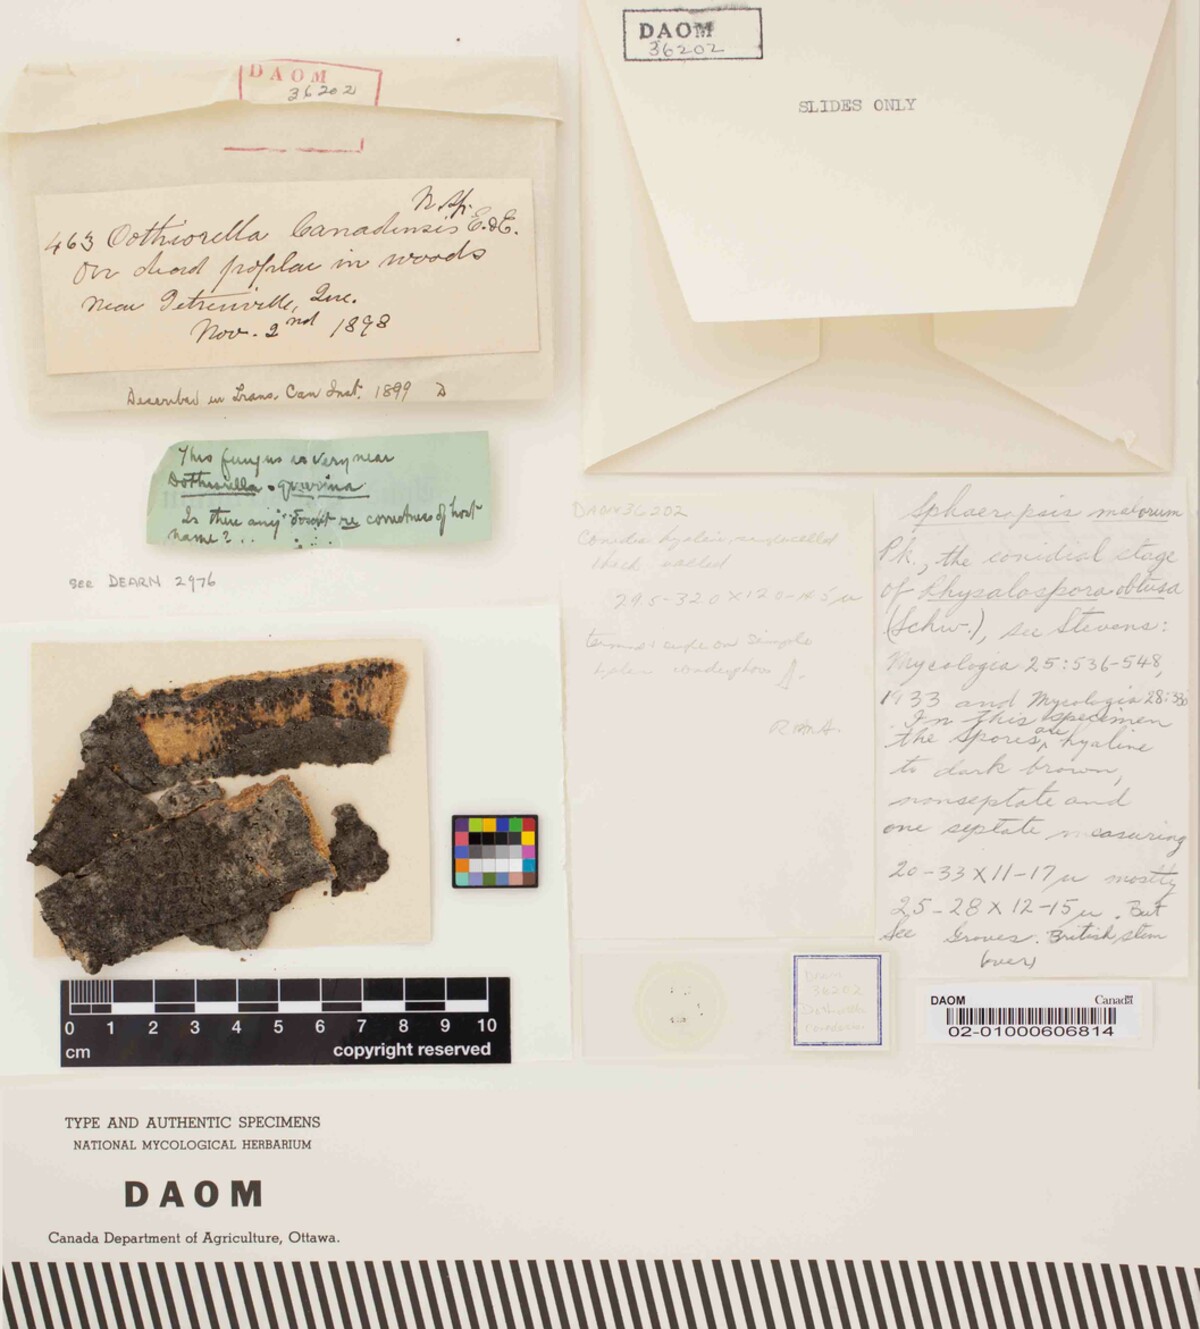 DAOM
36202
N. Sp.
463 Dothiorella Canadensis E. & E.
On dead poplar in woods
near
Que.
Nov. 2nd 1898
Described in Trans. Can Inst. 1899 D
This fungus is very near
Dothiorella quercina
Is there any doubt re correctness of host
name?
SEE DEARN 2976
DAOM
36202
SLIDES ONLY
DAOM 36202
Conidia hyalin,
thick walled
29.5-32.0 X 12.0-14.5 µ
on simple
Sphaeropsis malorum
Pk., the conidial stage
of Physalospora obtusa
(Schw.), see Stevens:
Mycologia 25:536-548,
1933 and Mycologia 28:330
In this specimen
the spores are hyaline
to dark brown,
nonseptate and
one septate measuring
20-33 X 11-17 µ mostly
25-28 X 12-15 µ. But
see Groves. British stem
(over)
Daom
36202
Dothiorella
canadensis
DAOM Canada
02-01000606814
0 1 2 3 4 5 6 7 8 9 10
cm copyright reserved
TYPE AND AUTHENTIC SPECIMENS
NATIONAL MYCOLOGICAL HERBARIUM
DAOM
Canada Department of Agriculture, Ottawa.